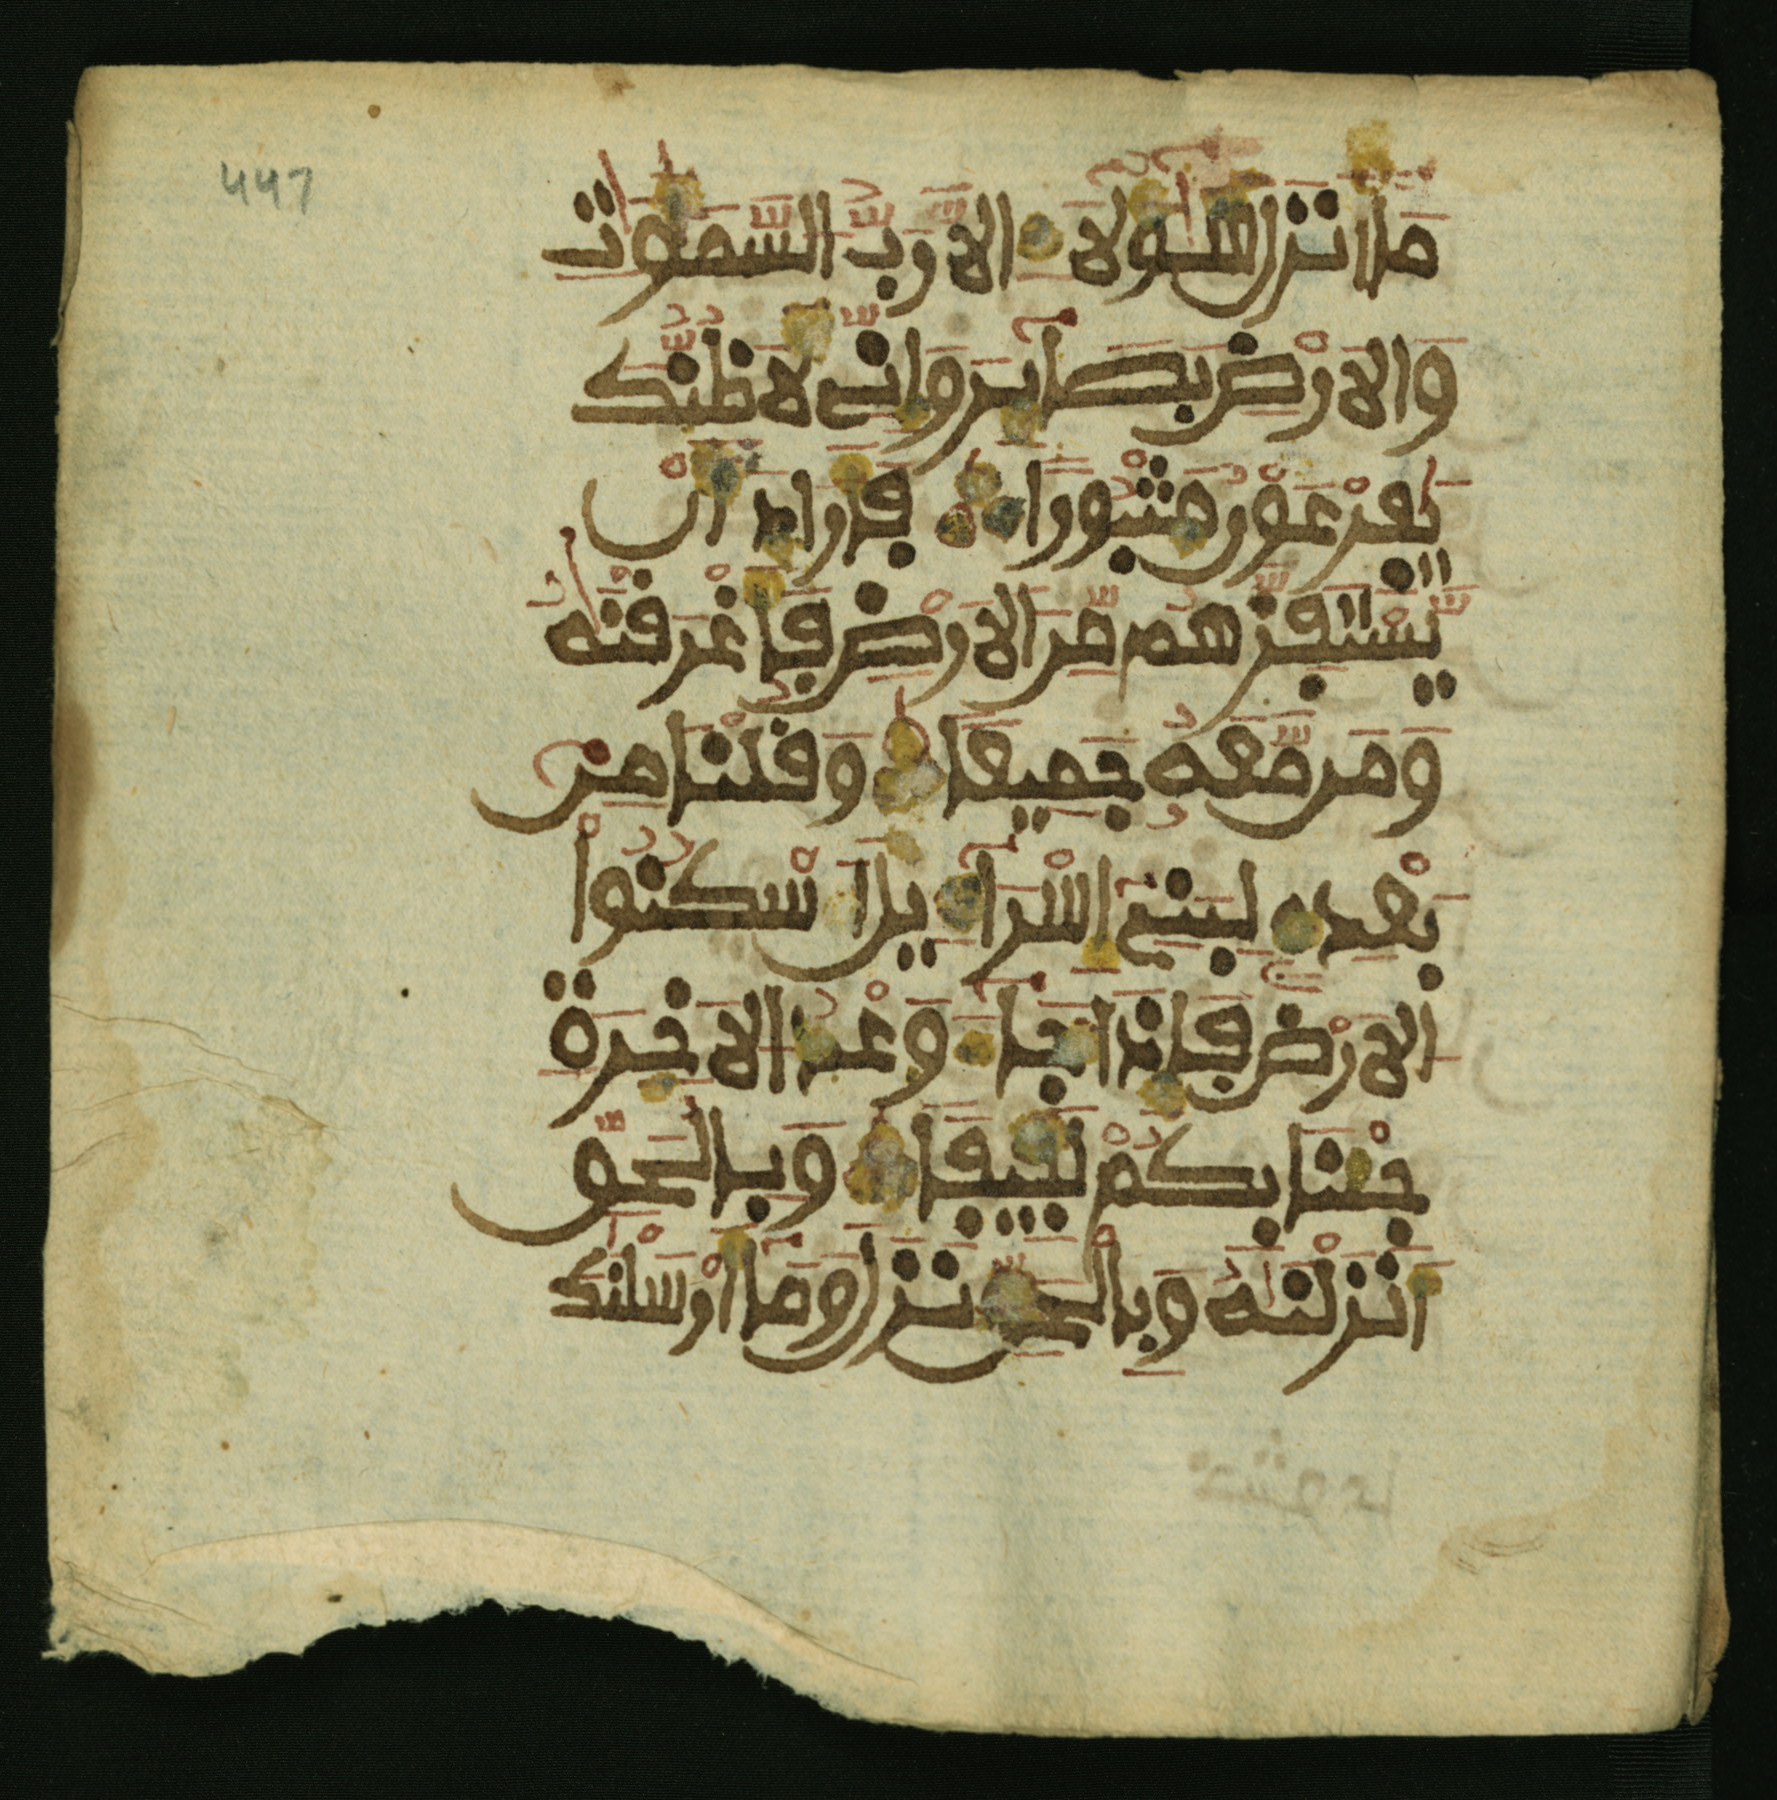 447
مَا أنزَل هؤلاء إلا رَبُّ السَّمَوٰتِ
وَالاَرْضِ بَصَآئِرَ وَإِنِّے لَأَظُنُّكَ
يَٰفِرْعَوْنُ مَثْبُورًا فَأَرَادَ أَنْ
يَّسْتَفِزَّهُم مِّنَ الاَرْضِ فَأَغْرَقْنَٰهُ
وَمَن مَّعَهُ جَمِيعًا وَقُلْنَا مِنۢ
بَعْدِهِ لِبَنِے إِسْرَآءِيلَ اَسْكُنُواْ
الاَرْضَ فَإِذَا جَآءَ وَعْدُ الاَخِرَةِ
جِئْنَا بِكُمْ لَفِيفًا وَبِالْحَقِّ
أَنزَلْنَٰهُ وَبِالْحَقِّ نَزَلَ وَمَآ أَرْسَلْنَٰكَ